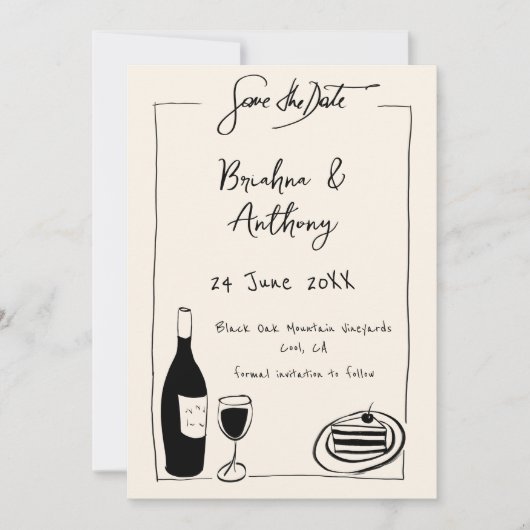 Save the Date
Briahna &
Anthony
24 June 20XX
Black Oak Mountain Vineyards
Cool, CA
formal invitation to follow